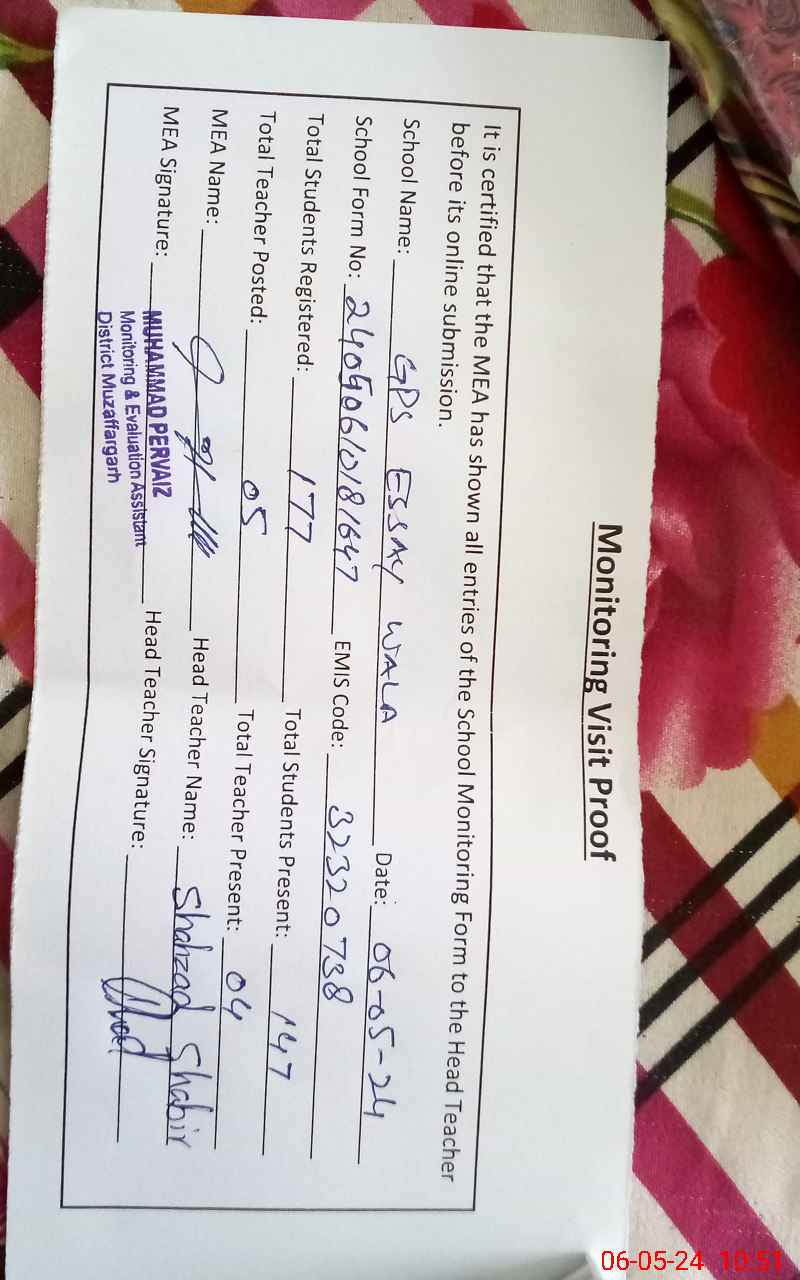 Monitoring Visit Proof
It is certified that the MEA has shown all entries of the School Monitoring Form to the Head Teacher
before its online submission.
School Name: GPS ESSAY WALA Date: 06-05-24
School Form No: 2405061018 1647 EMIS Code: 32320738
Total Students Registered: 177 Total Students Present: 147
Total Teacher Posted: 05 Total Teacher Present: 04
MEA Name: Head Teacher Name: Shahzad Shabir
MEA Signature: MUHAMMAD PERVAIZ Head Teacher Signature:
Monitoring & Evaluation Assistant
District Muzaffargarh
06-05-24 10:51